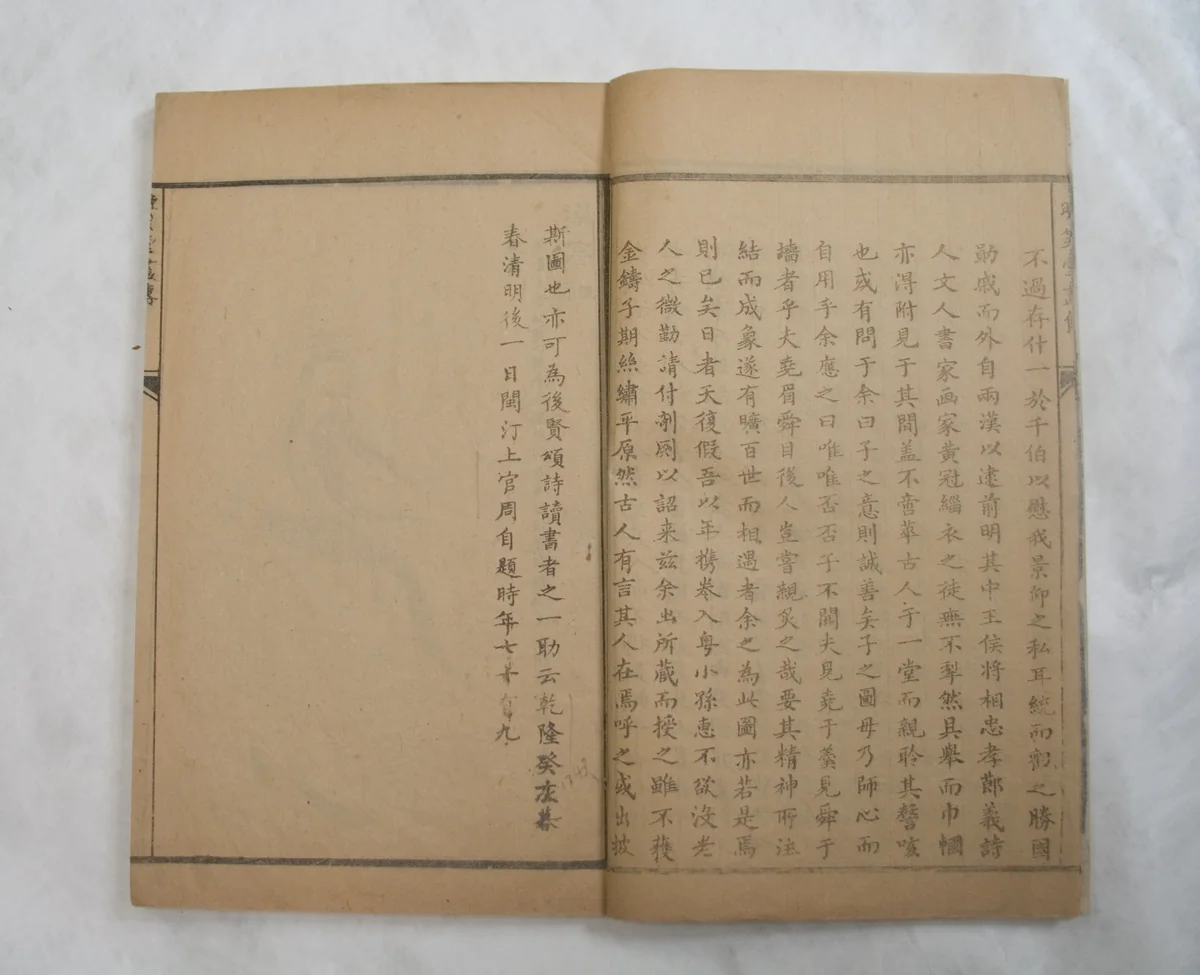 不過存什一於千伯以慰我景仰之私耳統而觀之勝國
勛戚而外自兩漢以逮前明其中王侯將相忠孝節義詩
人文人書家画家黄冠緇衣之徒無不犁然具舉而巾幗
亦得附見于其間盖不啻萃古人于一堂而親聆其謦咳
也或有問于余曰子之意則誠善矣子之圖毋乃師心而
自用乎余應之曰唯唯否否子不聞夫見堯于羹見舜于
墻者乎夫堯眉舜目後人豈嘗親炙之哉要其精神所注
結而成象遂有曠百世而相遇者余之為此圖亦若是焉
則已矣日者天復假吾以年携拳入粤小孫惠不欲没老
人之微勤請付剞劂以詔来兹余出所蔵而授之雖不獲
金鑄子期絲繡平原然古人有言其人在焉呼之或出披
斯圖也亦可為後賢頌詩讀書者之一助云乾隆癸亥暮
春清明後一日閩汀上官周自題時年七十有九